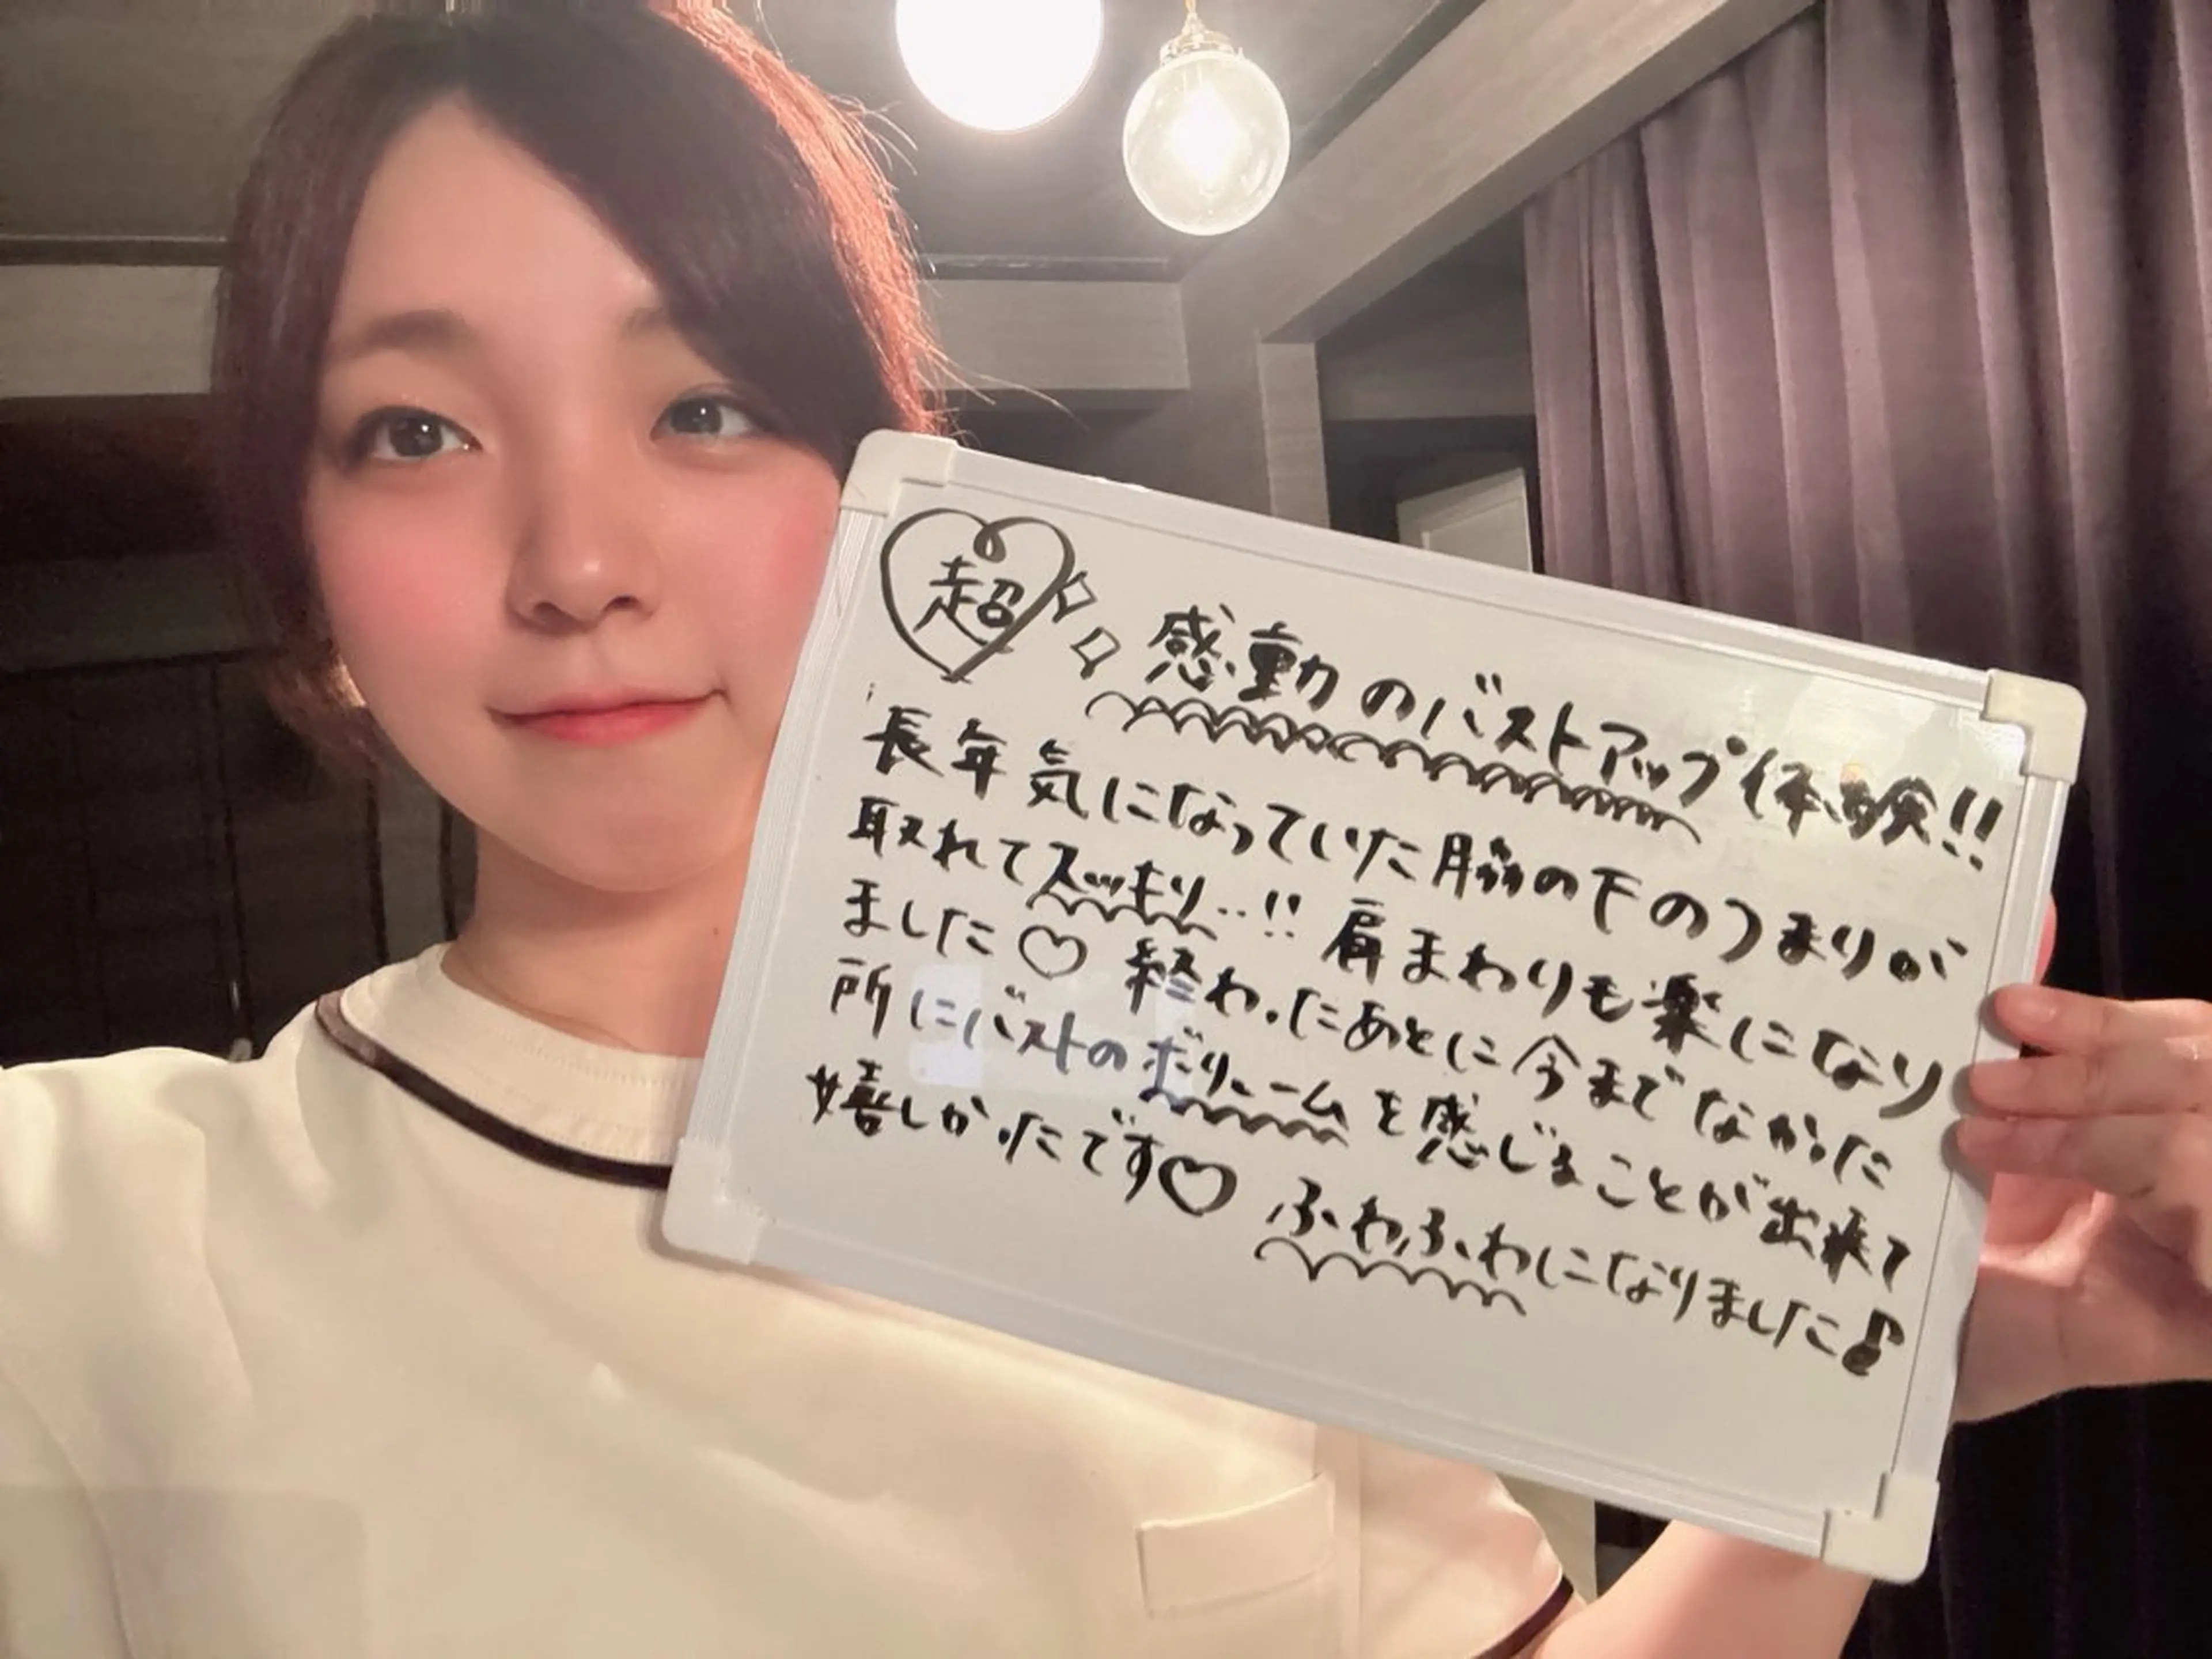 超 感動のバストアップ体験!!
長年気になっていた脇の下のつまりが
取れてスッキリ..!! 肩まわりも楽になり
ました♡ 終わったあとに今までなかった
所にバストのボリュームを感じることが出来て
嬉しかったです♡ ふわふわになりました♪